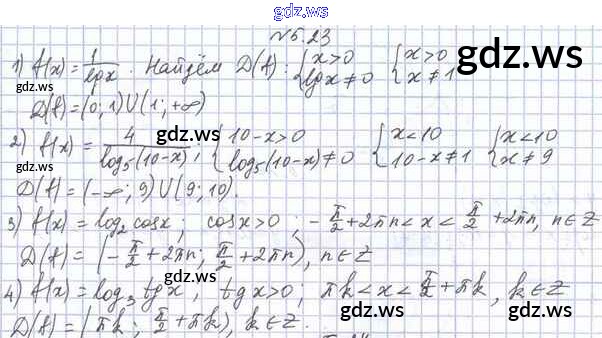 gdz.ws
№5.23
1) f(x) = 1/lg x . Найдём D(f): { x>0 lg x ≠ 0 { x>0 x ≠ 1
D(f) = (0; 1) ∪ (1; +∞)
gdz.ws gdz.ws
2) f(x) = 4/log₅(10-x); { 10-x>0 log₅(10-x) ≠ 0 { x<10 10-x ≠ 1 { x<10 x ≠ 9
D(f) = (-∞; 9) ∪ (9; 10).
gdz.ws gdz.ws
3) f(x) = log₂ cos x; cos x > 0; -π/2 + 2πn < x < π/2 + 2πn, n ∈ Z
D(f) = (-π/2 + 2πn; π/2 + 2πn), n ∈ Z
gdz.ws gdz.ws
4) f(x) = log₃ tg x; tg x > 0; πk < x < π/2 + πk, k ∈ Z
D(f) = (πk; π/2 + πk), k ∈ Z.
gdz.ws gdz.ws